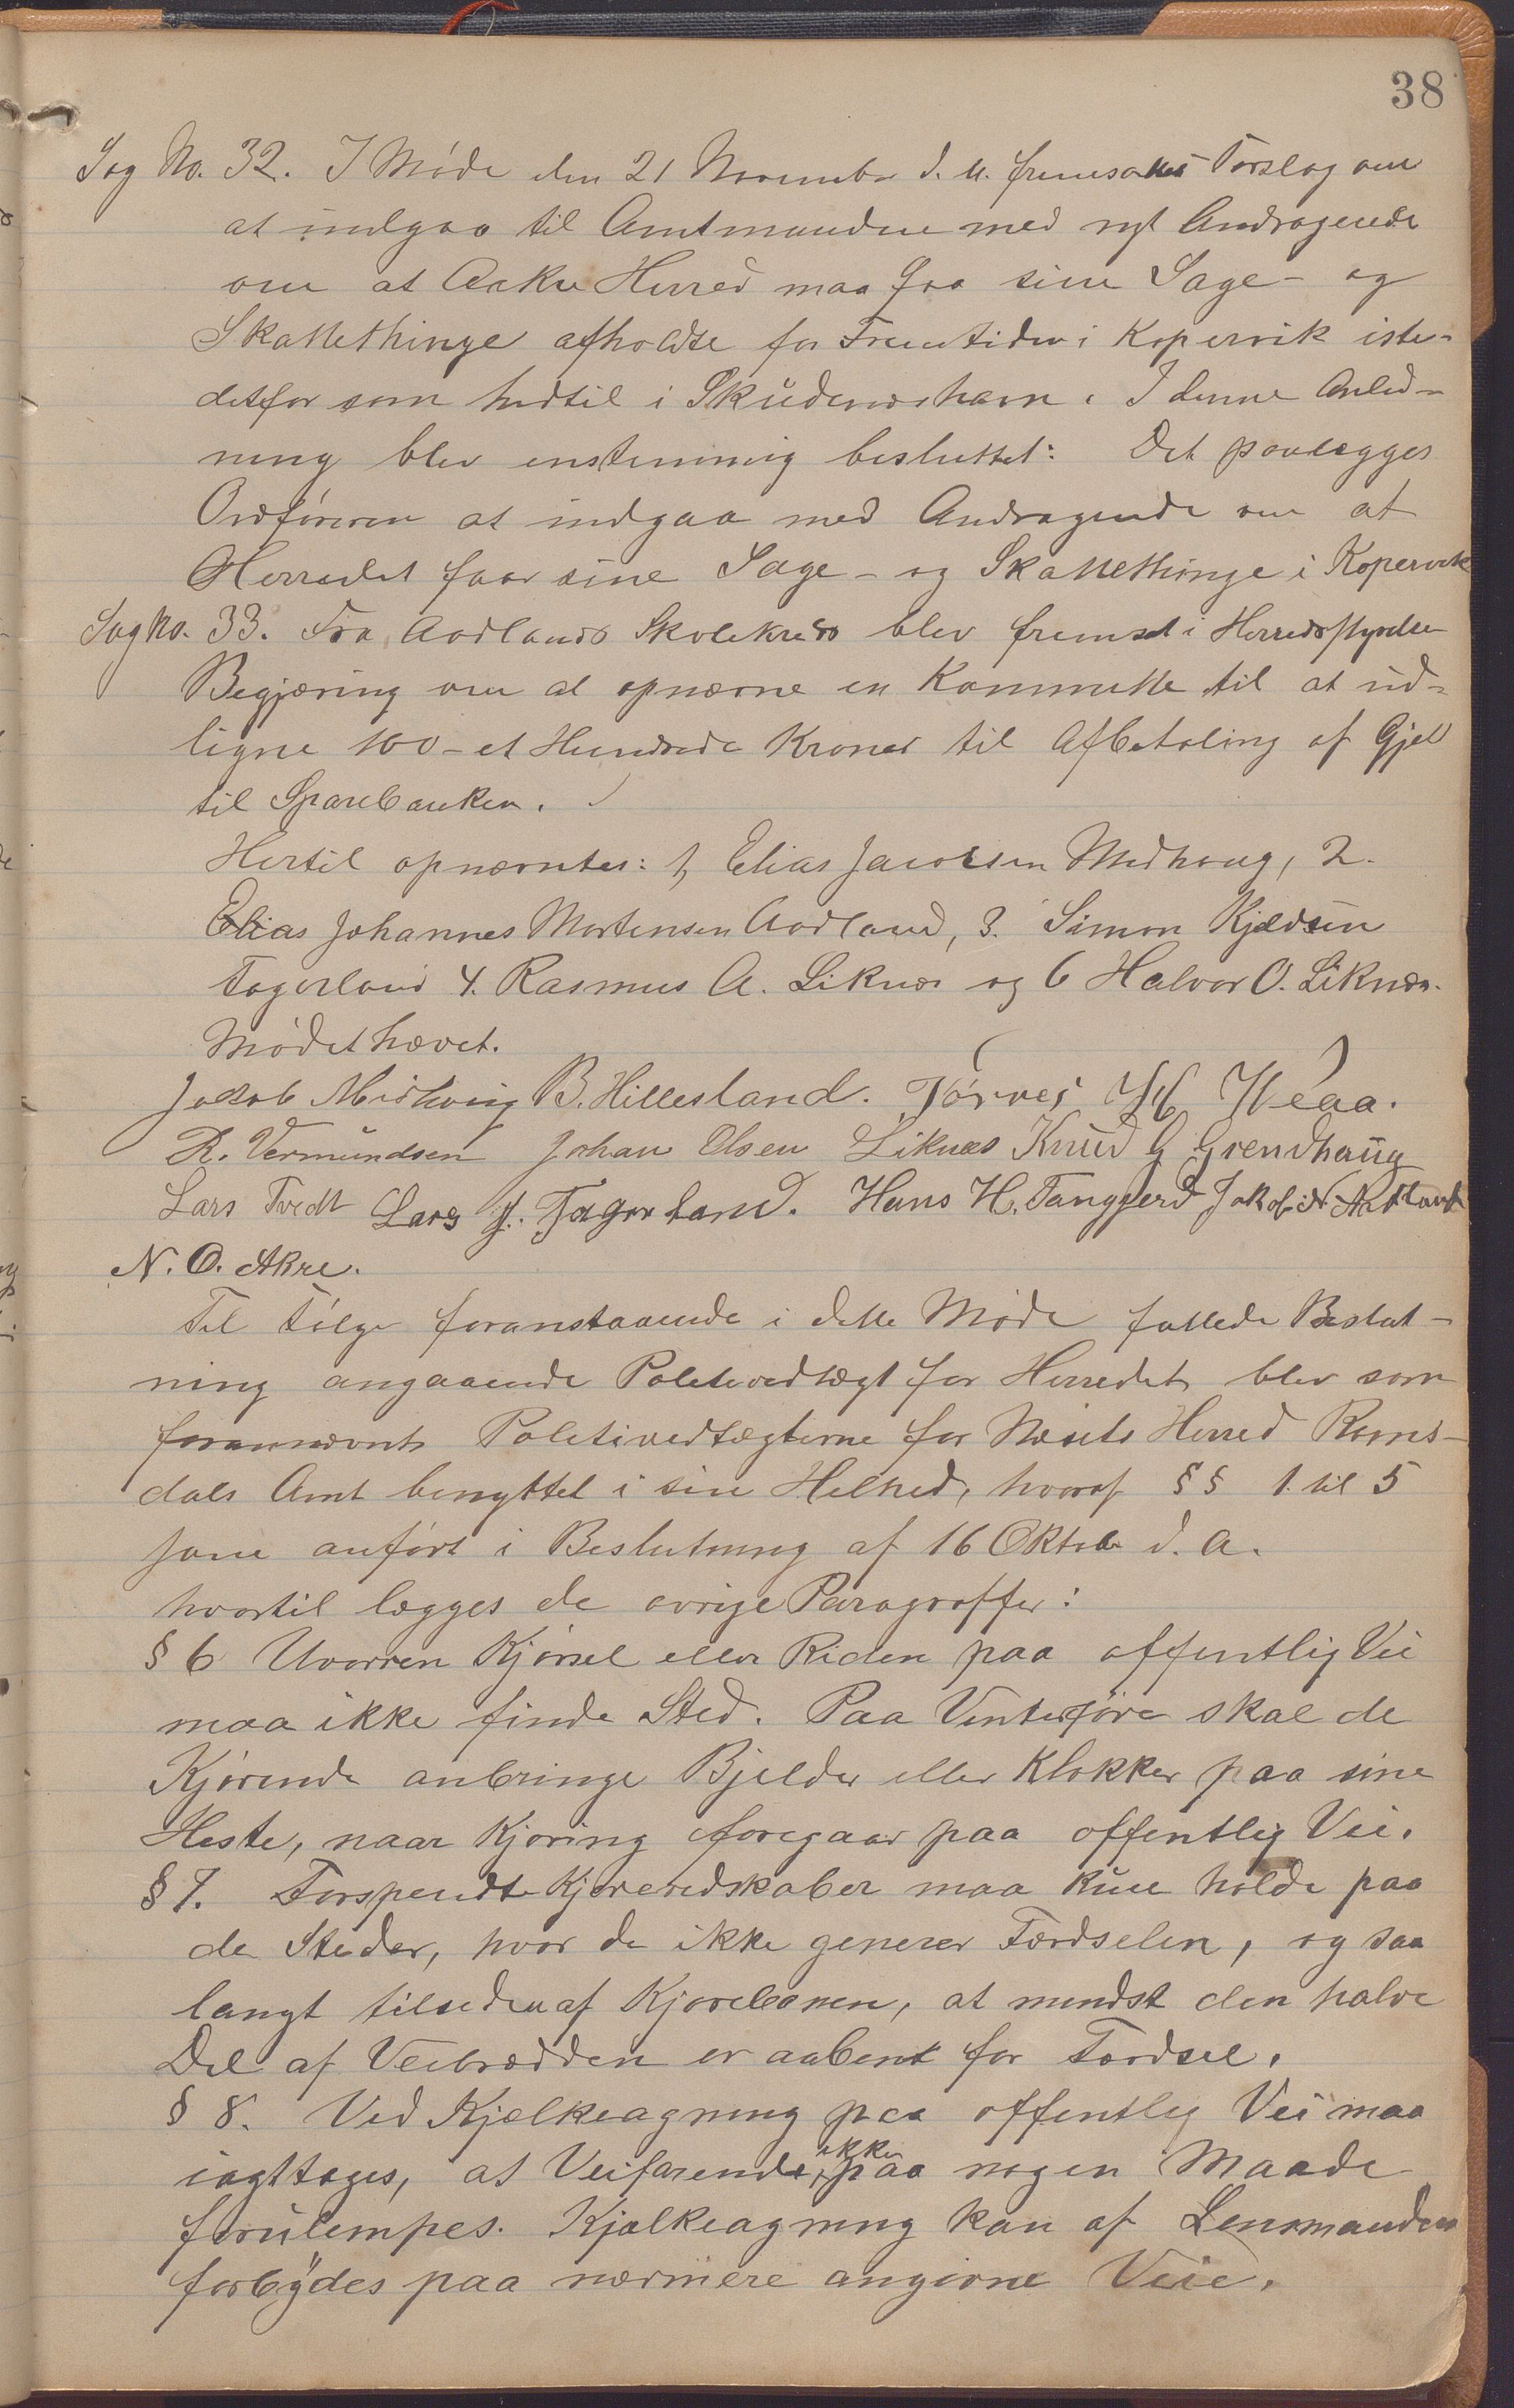 38
Sag No. 32. I Møde den 21 November d. A. fremsattes Forslag om
at indgaa til Amtmanden med nyt Andragende
om at Aakre Herred maa faa sine Sage- og
Skattethinge afholdte for Fremtiden i Kopervik iste-
detfor som hidtil i Skudeneshavn. I denne Anled-
ning blev enstemmig besluttet: Det paalægges
Ordføreren at indgaa med Andragende om at
Herredet faar sine Sage- og Skattethinge i Kopervik
Sag No. 33. Fra Aadlands Skolekreds blev fremsat i Herredsstyrelsen
Begjæring om at opnævne en Kommitte til at ud-
ligne 100 - et Hundrede Kroner til Afbetaling af Gjæld
til Sparebanken.
Hertil opnævntes: 1, Elias Jacobsen Medhaug, 2.
Elias Johannes Mortensen Aadland, 3. Simon Kjeldsen
Fagerland 4. Rasmus A. Liknes og 6 Halvor O. Liknes.
Mødet hævet.
Jakob Midhaug B. Hillesland. Tørres H Veaa.
R. Vermundsen Johan Olsen Liknes Knud G Grendhaug
Lars Tvedt Lars J. Fagerland. Hans H. Tangjerd Jakob N. Aadland
N. O. Akre.
Til Følge foranstaaende i dette Møde fattede Beslut-
ning angaaende Politivedtægt for Herredet blev som
forannævnt Politivedtægterne for Nesets Herred Roms-
dals Amt benyttet i sin Helhed, hvoraf §§ 1 til 5
som anført i Beslutning af 16 Oktober d. A.
hvortil lægges de øvrige Paragraffer:
§ 6 Uvorren Kjørsel eller Riden paa offentlig Vei
maa ikke finde Sted. Paa Vinterføre skal de
Kjørende anbringe Bjelder eller Klokker paa sine
Heste, naar Kjøring foregaar paa offentlig Vei.
§ 7. Forspendte Kjøreredskaber maa kun holde paa
de Steder, hvor de ikke generer Færdselen, og saa
langt tilsiden af Kjørebanen, at mindst den halve
Del af Veibredden er aabent for Færdsel.
§ 8. Ved Kjælkeagning paa offentlig Vei maa
iagttages, at Veifarende ikke paa nogen Maade
forulempes. Kjælkeagning kan af Lensmanden
forbydes paa nærmere angivne Veie.